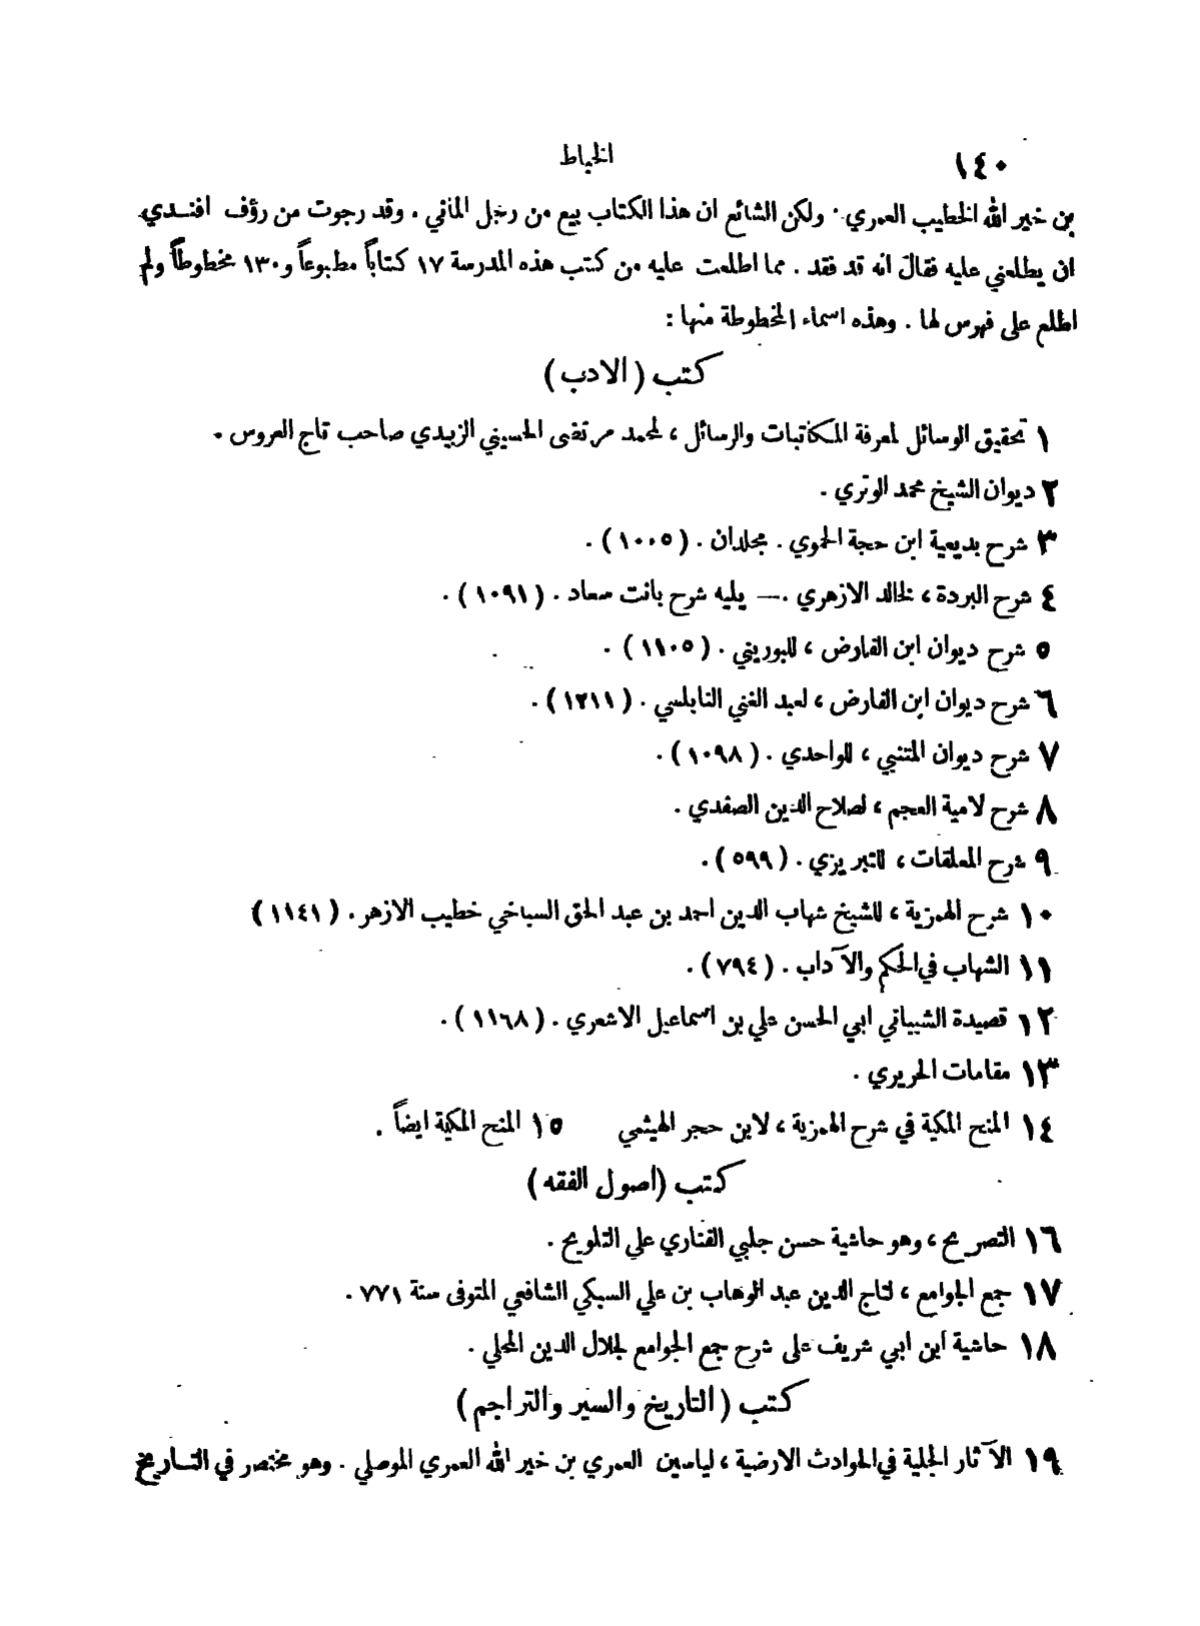 ١٤٠
الخياط
بن خير الله الخطيب العمري. ولكن الشائع ان هذا الكتاب بيع من رجل الماني . وقد رجوت من رؤف افنــدي
ان يطلعني عليه فقال انه قد فقد . مما اطلعت عليه من كتب هذه المدرسة ١٧ كتاباً مطبوعاً و١٣٠ مخطوطاً ولم
اطلع على فهرس لها . وهذه اسماء المخطوطة منها :
كتب ( الادب )
١ تحقيق الوسائل لمعرفة المكاتبات والرسائل ، لمحمد مرتضى الحسيني الزبيدي صاحب تاج العروس .
٢ ديوان الشيخ محمد الوتري .
٣ شرح بديعية ابن حجة الحموي . مجلدان . ( ١٠٠٥ ) .
٤ شرح البردة ، لخالد الازهري .— يليه شرح بانت سعاد . ( ١٠٩١ ) .
٥ شرح ديوان ابن الفارض ، للبوريني . ( ١١٠٥ ) .
٦ شرح ديوان ابن الفارض ، لعبد الغني النابلسي . ( ١٢١١ ) .
٧ شرح ديوان المتنبي ، للواحدي . ( ١٠٩٨ ) .
٨ شرح لامية العجم ، لصلاح الدين الصفدي .
٩ شرح المعلقات ، للتبريزي . ( ٥٩٩ ) .
١٠ شرح الهمزية ، للشيخ شهاب الدين احمد بن عبد الحق السباخي خطيب الازهر . ( ١١٤١ )
١١ الشهاب في الحكم والآداب . ( ٧٩٤ ) .
١٢ قصيدة الشيباني ابي الحسن علي بن اسماعيل الاشعري . ( ١١٦٨ ) .
١٣ مقامات الحريري .
١٤ المنح المكية في شرح الهمزية ، لابن حجر الهيثمي ١٥ المنح المكية ايضاً .
كتب ( اصول الفقه )
١٦ التصريح ، وهو حاشية حسن جلبي الفناري على التلويح .
١٧ جمع الجوامع ، لتاج الدين عبد الوهاب بن علي السبكي الشافعي المتوفى سنة ٧٧١ .
١٨ حاشية ابن ابي شريف على شرح جمع الجوامع لجلال الدين المحلي .
كتب ( التاريخ والسير والتراجم )
١٩ الآثار الجلية في الحوادث الارضية ، لياسين العمري بن خير الله العمري الموصلي . وهو مختصر في التــاريخ